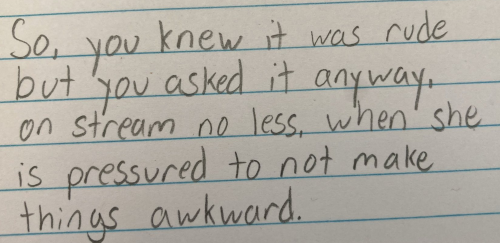 So, you knew it was rude
but you asked it anyway,
on stream no less, when she
is pressured to not make
things awkward.